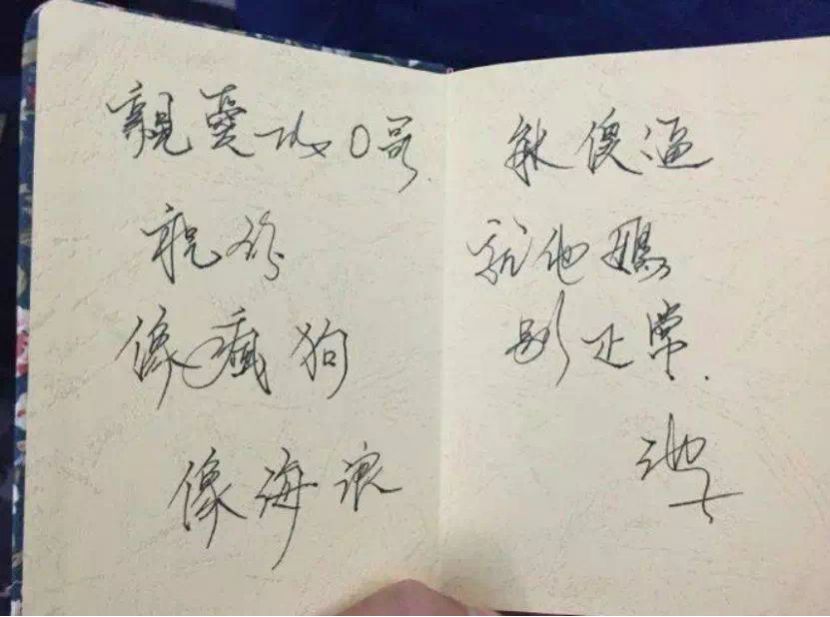 親愛 O哥
祝你
像瘋狗
像海浪
傻逼
就他媽
別正常.
池